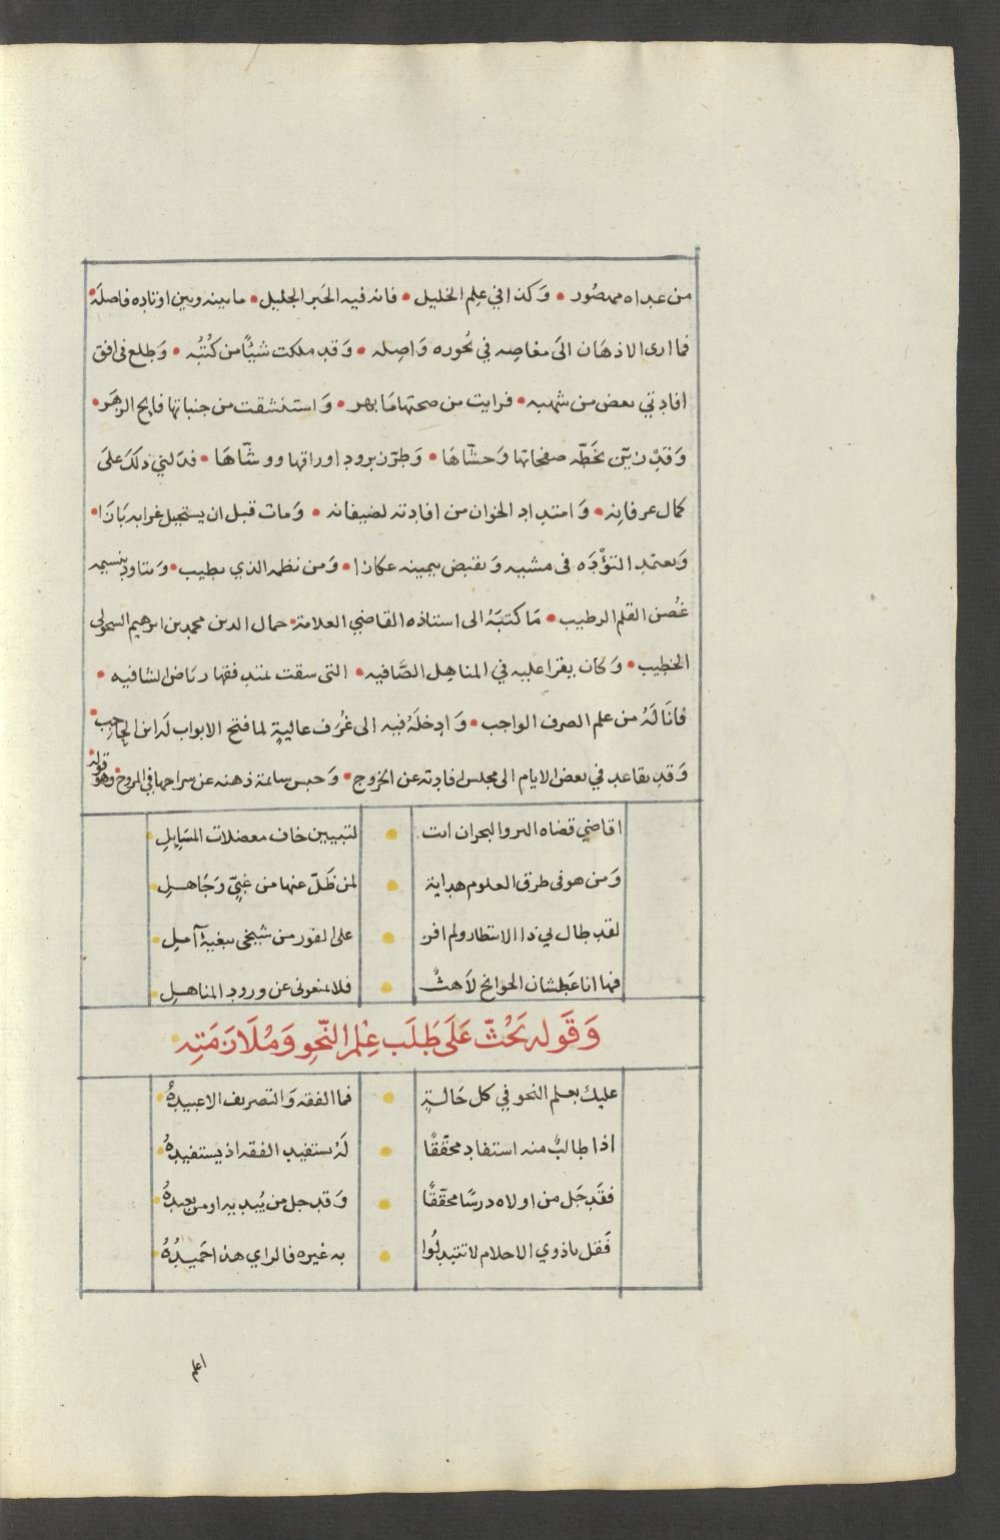 من عداه مهصُور • وَكذا في عِلم الخليل • فانه فيه الحَبر الجليل • ما بينه وبين اوتاده فاصلَة •
فما ارى الاذهَان الىَ مغاصِه في بُحوره وَاصِله • وَقد ملكت شيًّا من كُتُبُه • وَطلع فى افق
افادتي بعض من شهبه • فرايت من صحتها مَا بهر • وَاستنشقت من جنباتها فايح الزهَر •
وَقد زيّن بخَطّه صفحاتها وَحشّاهَا • وَطرّز برود اوراقها ووشّاهَا • فدَلني ذلكَ علىَ
كمال عرفانِه • وَامتداد الخوان من افادته لضيفانه • وَمات قبل ان يستحيل غرابه بَازَا •
وَيعتمد التؤَّدَه فى مشيه وَيقبض بيمينه عكازا • وَمن نظمه الذي يطيب • وَيتاود بنسيمه
غُصن القلم الرطيب • مَا كتبَهُ الى استاذه القاضي العلامة • جمال الدين محمد بن ابرهيم السحولى
الخطيب • وَكان يقرا عليه في المناهِل الصَّافيه • التى سقت بمتدفقها رياض الشافيه •
فانَالَهُ من علم الصرف الواجب • وَادخلَهُ فيه الى غُرَف عاليةٍ لما فتح الابواب لَه ابن الحاجب •
وَقد تقاعد في بعض الايام الى مجلس افادته عن الخروج • وَحبس سائمة ذهنه عن سراحها فى المروج • وهو قوله
اقاضي قضاه البر والبحران انت • لتبيين خاف معضلات المسَايِلِ
وَمن هو فى طرق العلوم هداية • لمن ظَلّ عنها من غبيّ وَجَاهلِ
لقد طال لي ذا الانتظار ولم افز • على الفور من شيخى ببغيةَ آملِ
فها انا عَطشان الجوانح لاَهثٌ • فلا تمنعونى عن ورود المناهلِ
وَقَوله يَحُثّ عَلَى طَلَب عِلْم النّحو وَمُلَازَمَتِه •
عليك بعلم النحو في كل حَالةٍ • فما الفقه وَالتصريف الا عبيدهُ
اذا طالبٌ منه استفاد محقّقًا • لَهُ يستفيد الفقه اذ يستفيدهُ
فقَد جَل من اولاه درسًا محقّقًا • وَقد جل من يُبديه او من يعيدهُ
فَقل يا ذوي الاحلام لا تتبدلُوا • به غيره فالراي هذا حَميدُهُ